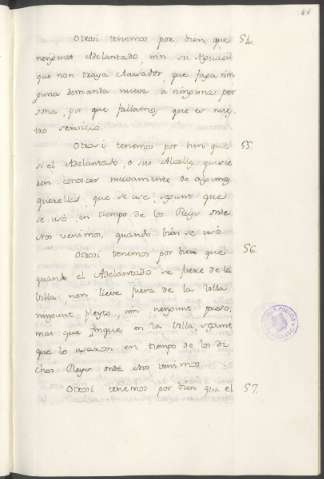 Otrosi tenemos por bien que 54.
nengun Adelantado, nin su
que non traya Aiuntador, que faga nin
guna demanda nueva a ninguna per
sona, por que fallamos, que es nues
tro servicio.
Otrosi tenemos por bien que 55.
si el Adelantado, o sus Alcalles quisie
ren conoscer nuevamente de algunas
querellas, que se use, segunt que
se usó en tiempo de los Reyes onde
nos venimos, quando bien se usó.
Otrosi tenemos por bien que 56.
quando el Adelantado se fuere de la
Villa, non lieve fuera de la Villa
ningunt pleyto, nin ningunt preso,
mas que finque en la Villa, segunt
que lo usaron en tiempo de los di
chos Reyes onde nos venimos.
Otrosi tenemos por bien que el 57.